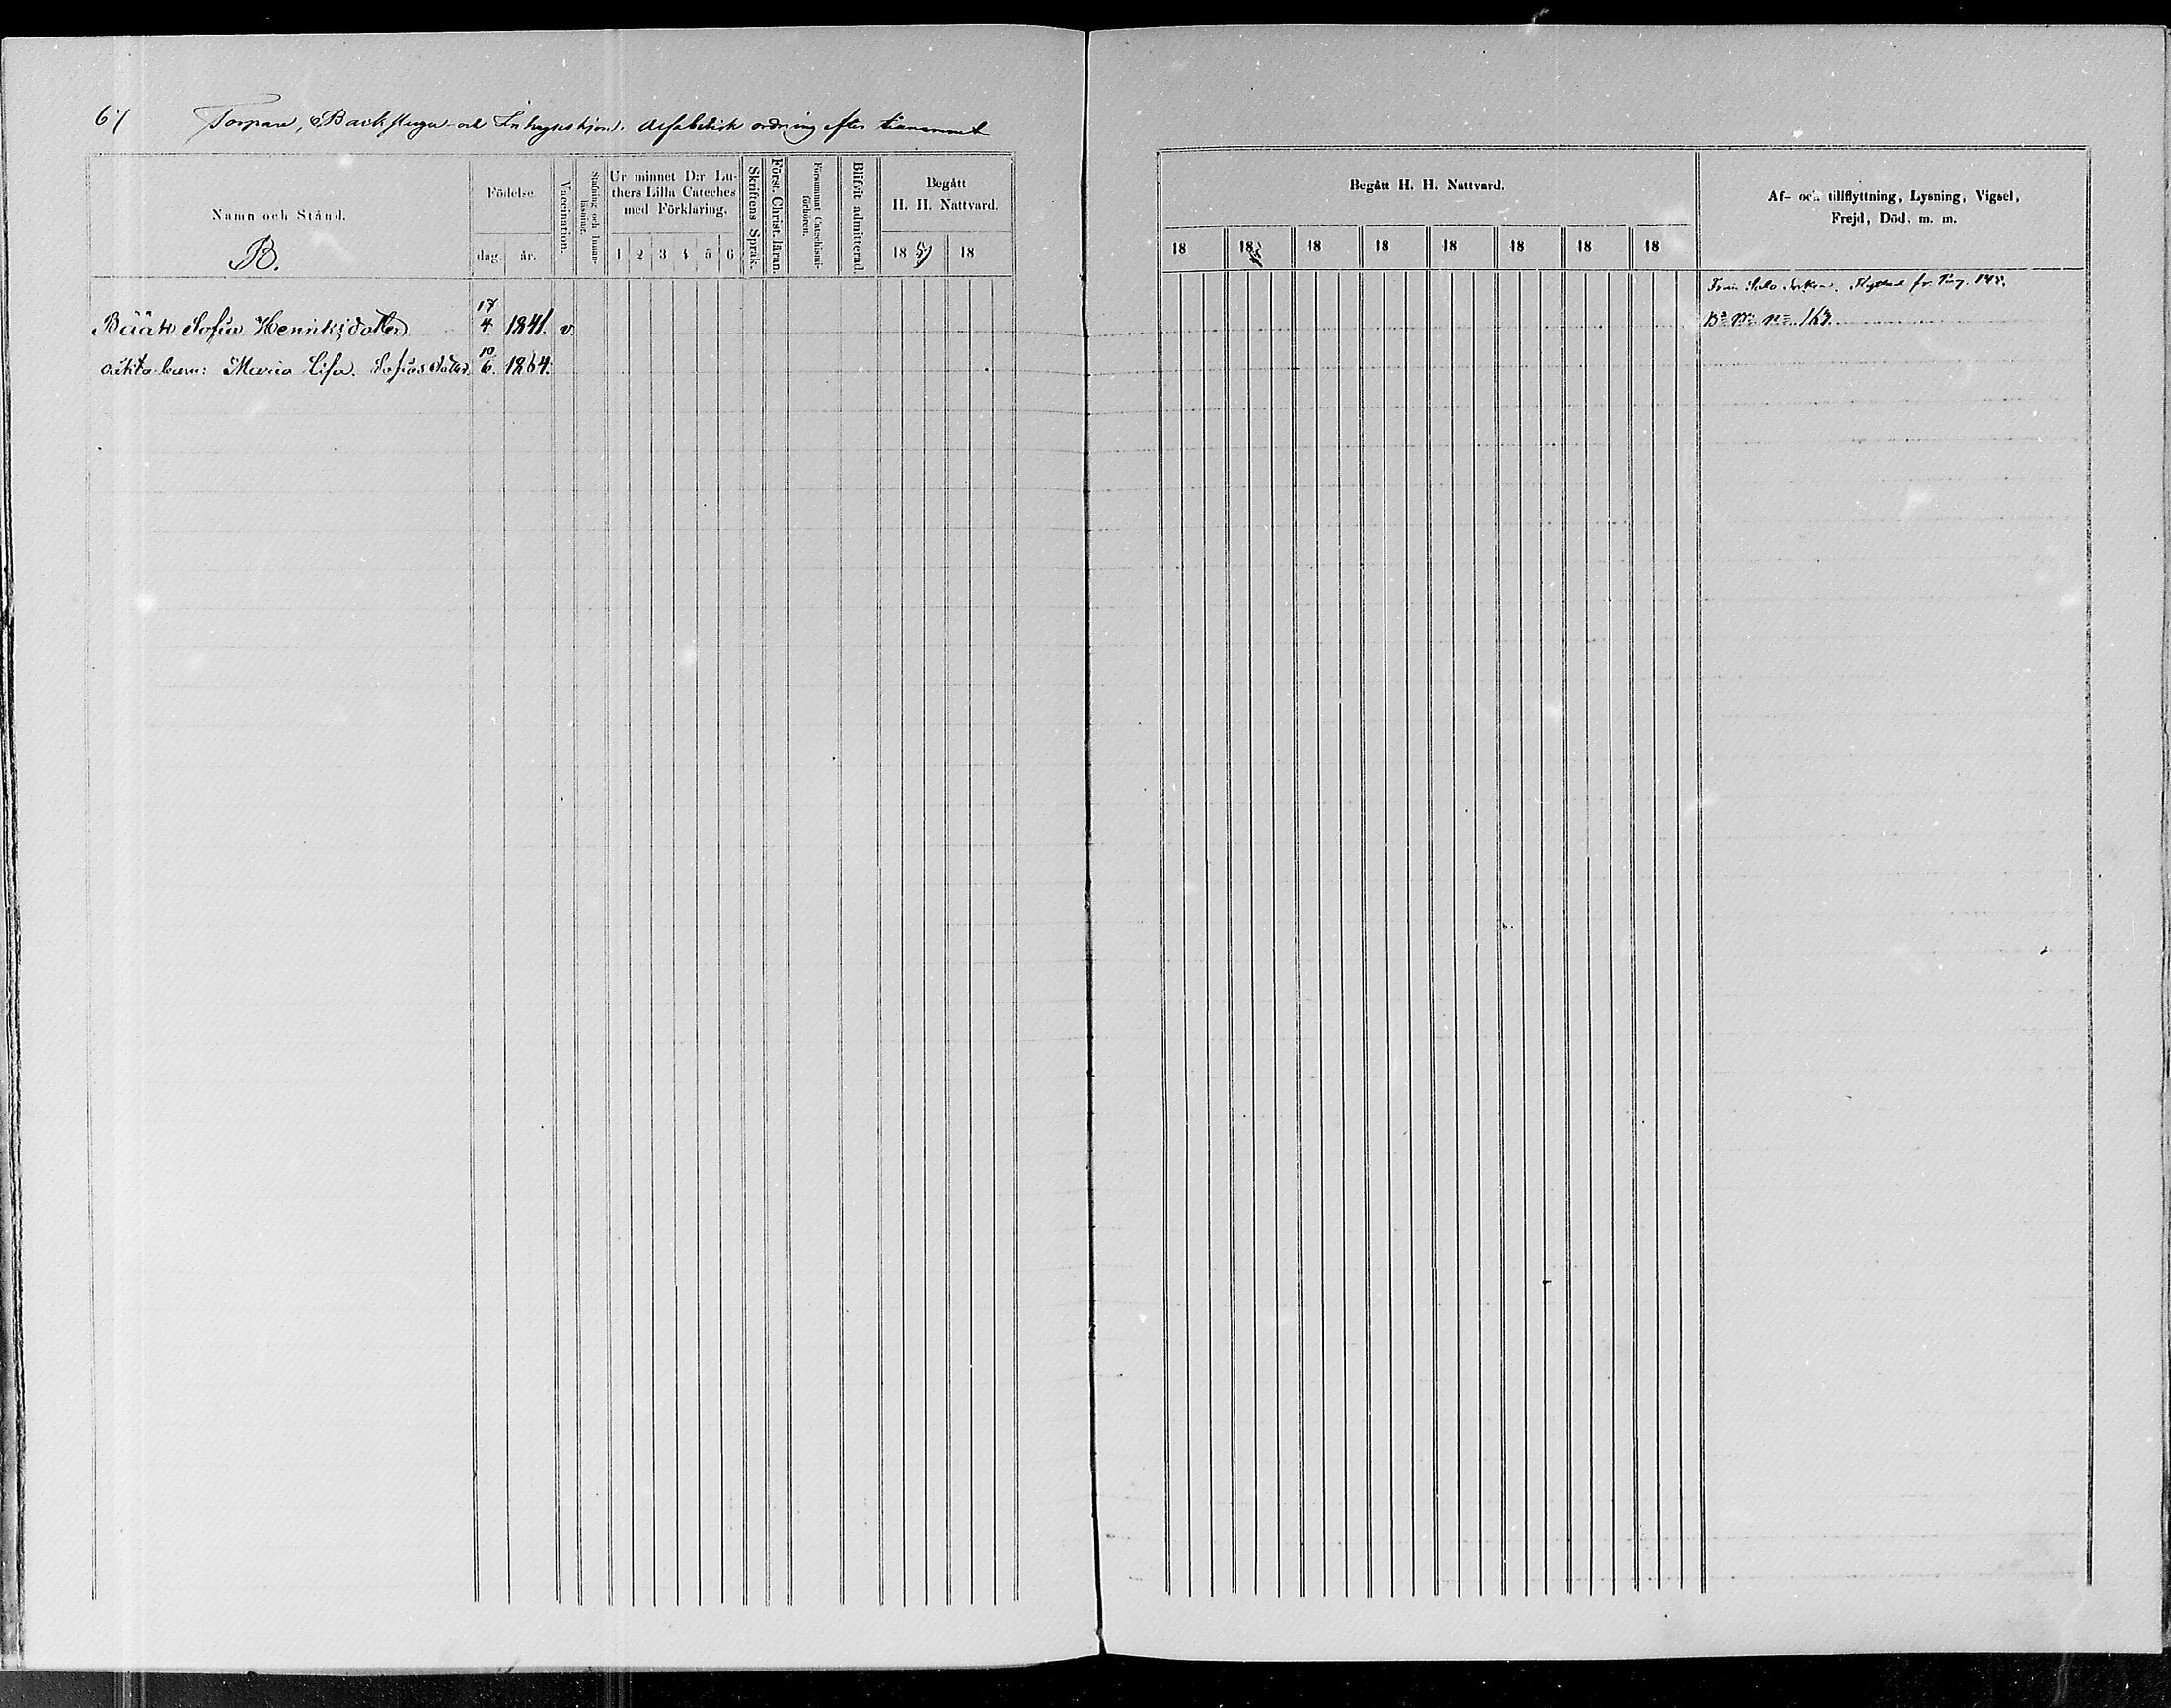 67 Torpare, Backstugu- och Inhyseshjon. Alfabetisk ordning efter
Namn och Stånd.
B.
Födelse
dag. år.
Vaccination.
Stafning och Innan-
läsning.
Ur minnet D:r Lu-
thers Lilla Cateches
med Förklaring.
1 2 3 4 5 6
Skriftens Språk.
Först. Christ. läran.
Försummat Catechismi-
förhören.
Blifvit admitterad.
Begått
H. H. Nattvard.
18 18
Begått H. H. Nattvard.
18 18 18 18 18 18 18 18
Af- och tillflyttning, Lysning, Vigsel,
Frejd, Död, m. m.
Bääk Sofia Henriksdotter 17 4. 1841. v.
oäkta barn: Maria Lisa. Sofiasdotter 10 6. 1864.
Från Salo Flyttad fr. Pag. 148.
163.